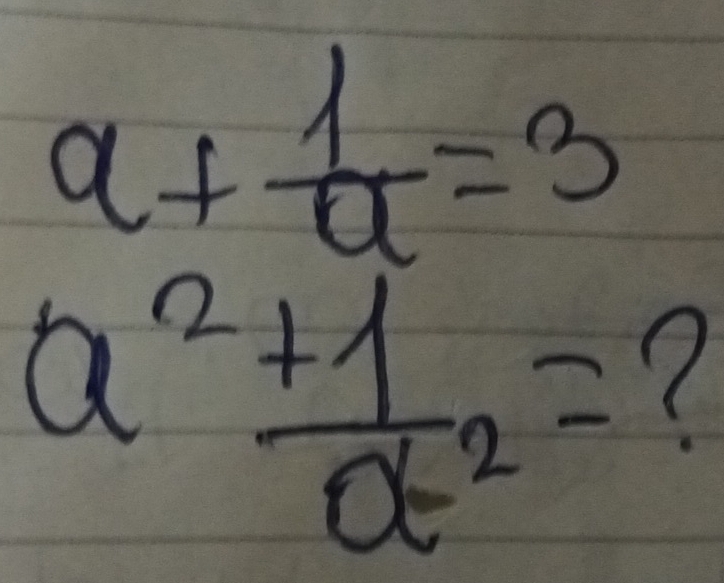 a + 1/a = 3
a² + 1/a² = ?